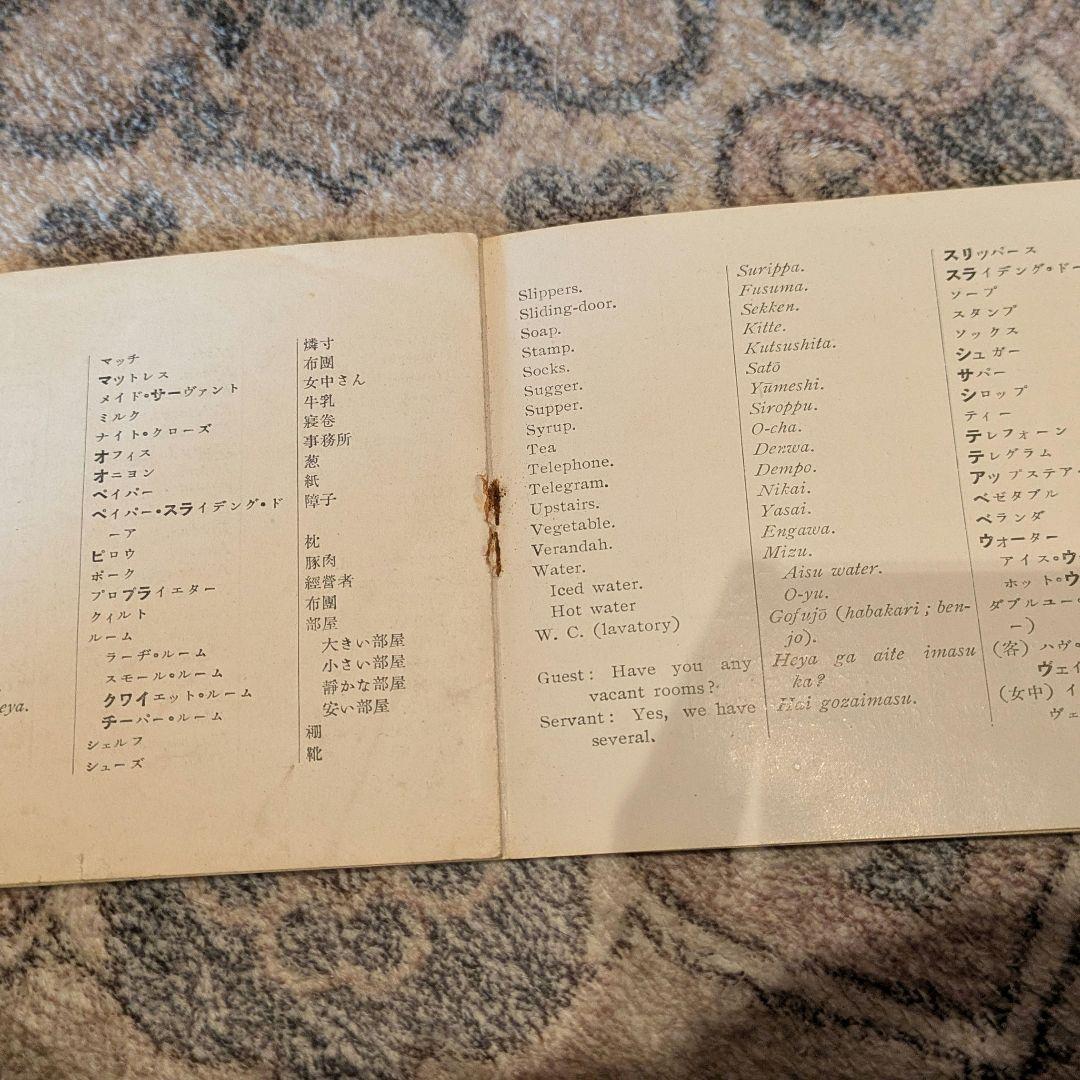 eya.
マッチ
マットレス
メイド・サーヴァント
ミルク
ナイト・クローズ
オフィス
オニヨン
ペイパー
ペイパー・スライデング・ド
ーア
ピロウ
ポーク
プロプライエター
クィルト
ルーム
ラーヂ・ルーム
スモール・ルーム
クワイエット・ルーム
チーパー・ルーム
シェルフ
シューズ
燐寸
布團
女中さん
牛乳
寢卷
事務所
葱
紙
障子
枕
豚肉
經營者
布團
部屋
大きい部屋
小さい部屋
靜かな部屋
安い部屋
棚
靴
Slippers.
Sliding-door.
Soap.
Stamp.
Socks.
Sugger.
Supper.
Syrup.
Tea
Telephone.
Telegram.
Upstairs.
Vegetable.
Verandah.
Water.
Iced water.
Hot water
W. C. (lavatory)
Guest: Have you any
vacant rooms?
Servant: Yes, we have
several.
Surippa.
Fusuma.
Sekken.
Kitte.
Kutsushita.
Satō
Yūmeshi.
Siroppu.
O-cha.
Denwa.
Dempo.
Nikai.
Yasai.
Engawa.
Mizu.
Aisu water.
O-yu.
Gofujō (habakari; ben-
jo).
Heya ga aite imasu
ka?
Hai gozaimasu.
スリッパース
スライデング・ドー
ソープ
スタンプ
ソックス
シュガー
サパー
シロップ
ティー
テレフォーン
テレグラム
アップステア・
ベゼタブル
ベランダ
ウォーター
アイス・ウォ
ホット・ウ
ダブルユー・
ー)
(客) ハヴ・
ヴェイ
(女中) イ
ヴェ